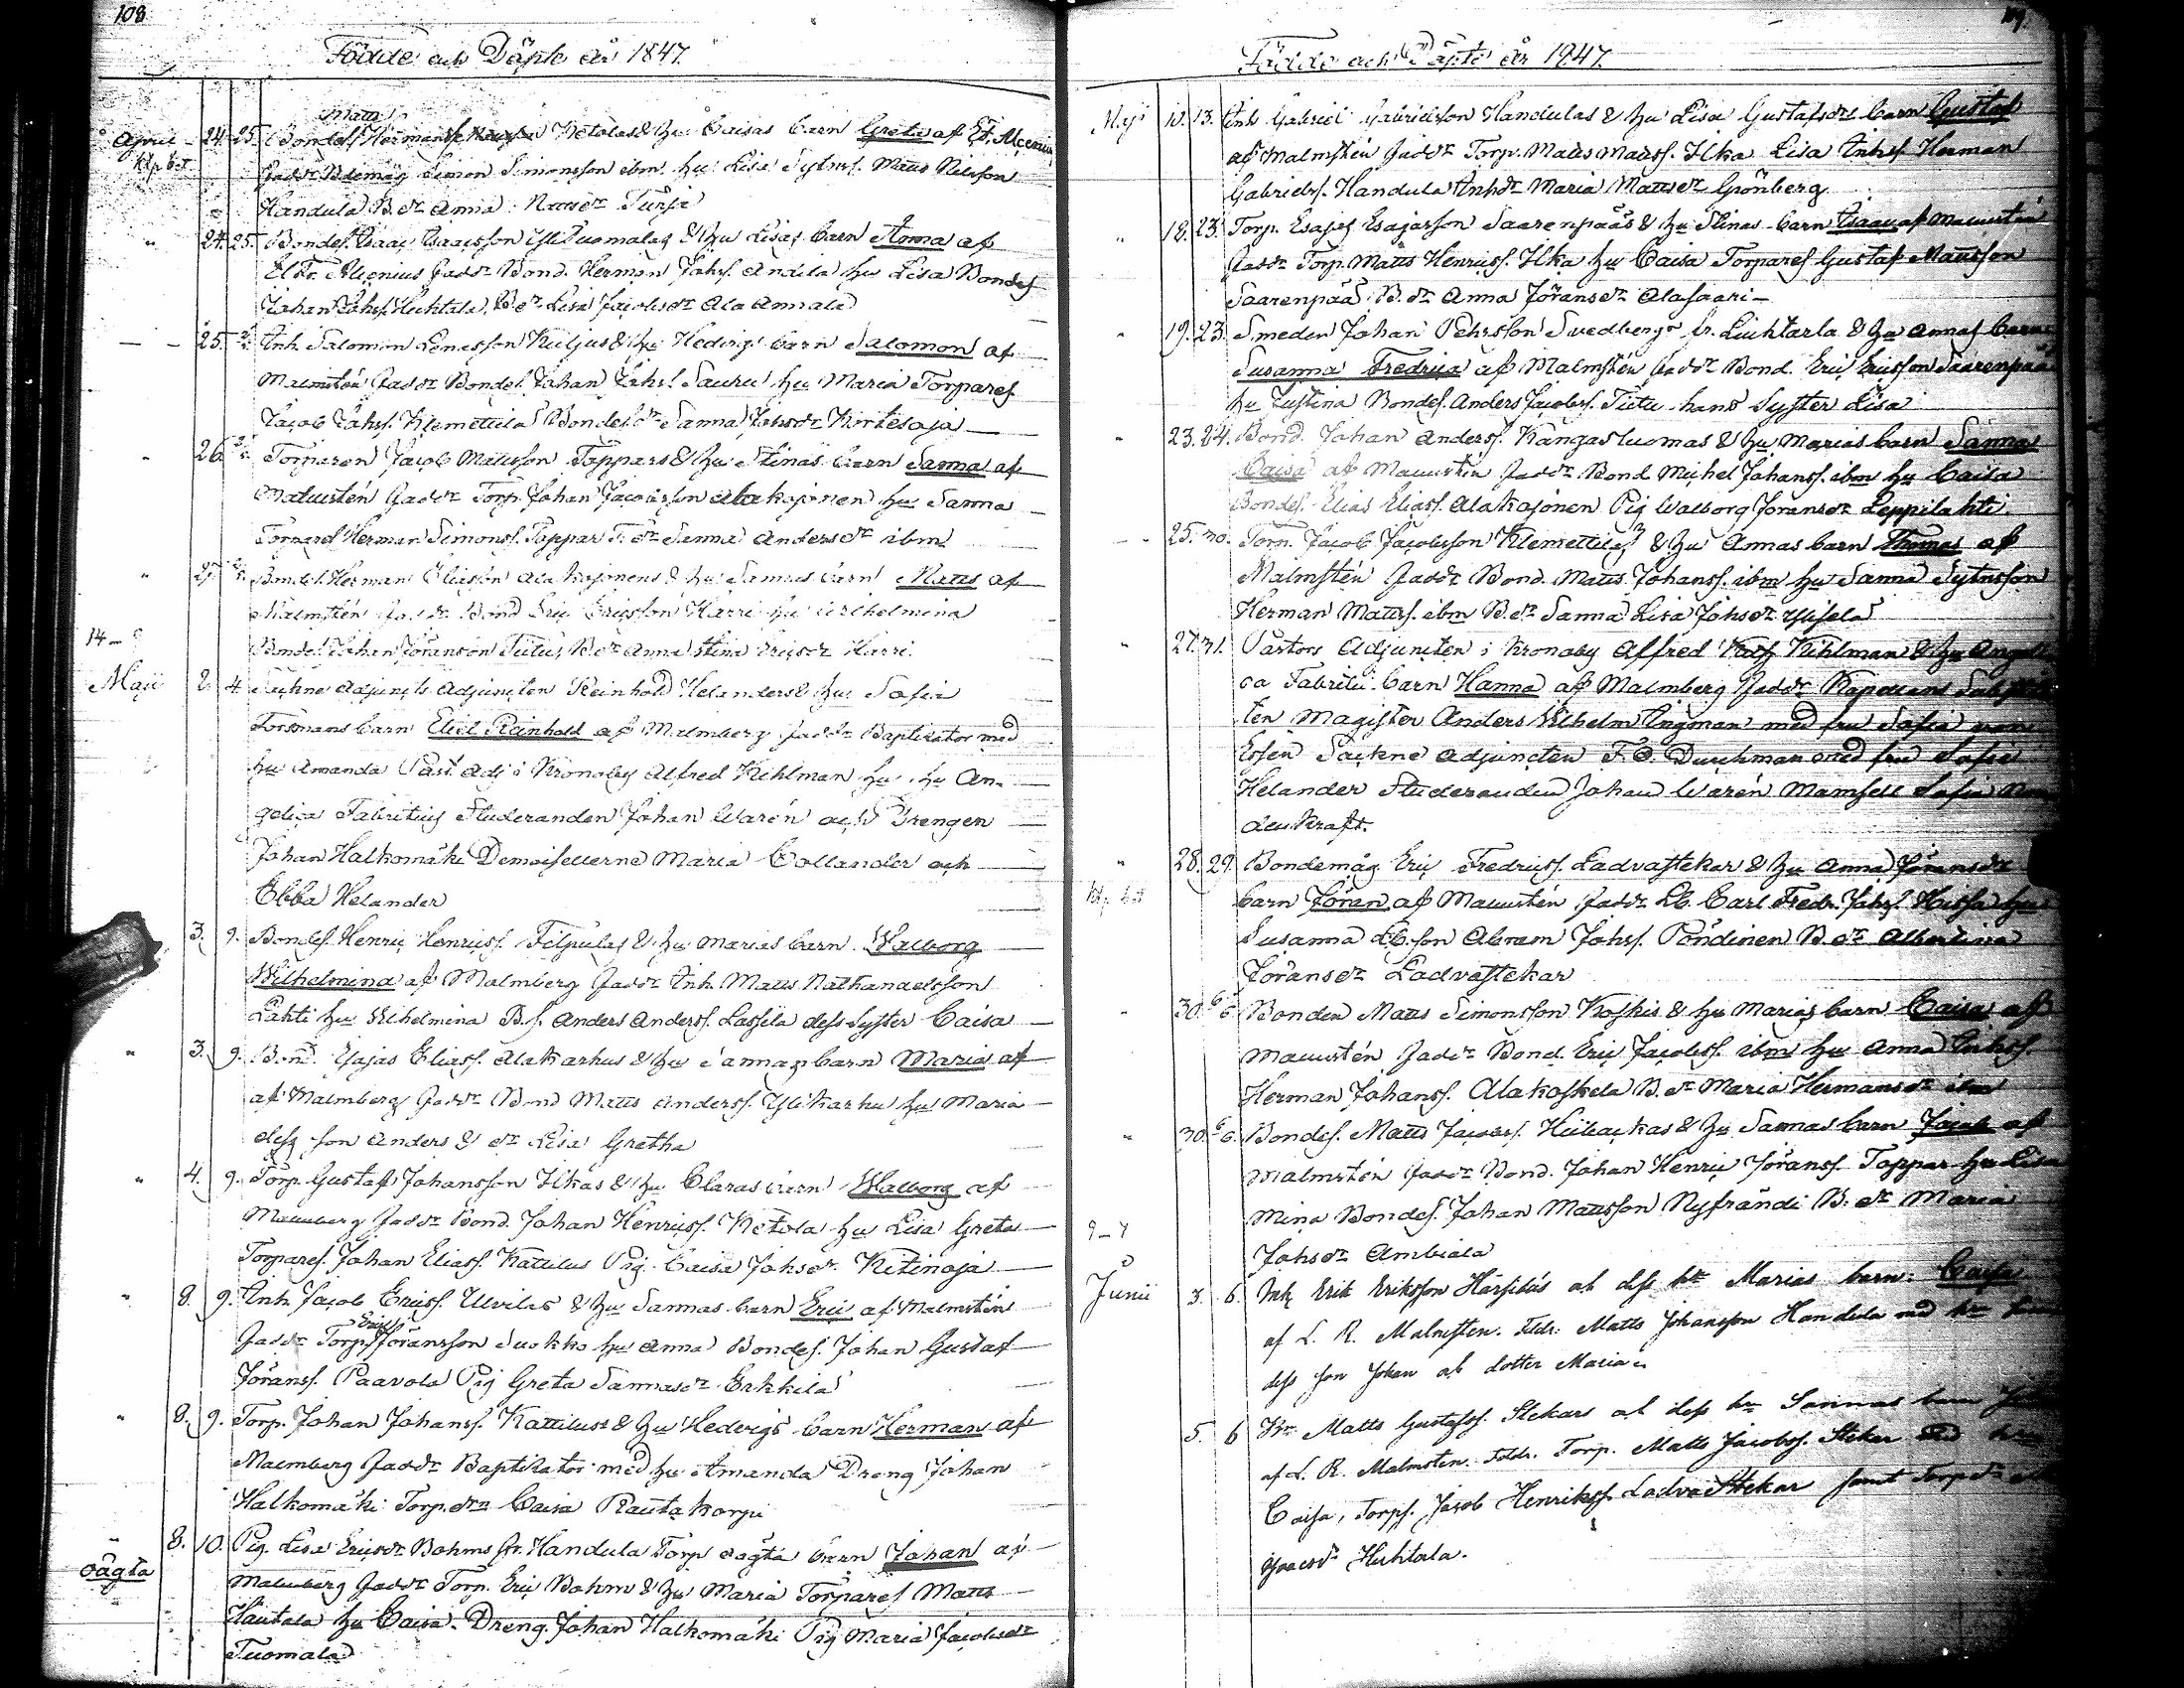 108
Födde och Döpte år 1847.
Matts
April 24. 25. Bondes. Hermans Ketolas & hu Caisas barn Greta af Et. Alcenius
Kp. bet Faddr Bdemåg Simon Simonsson ibm. hu Lisa Sytns. Matts Nilsson
Handula B. dr Anna
" 24. 25. Bondes. Isaac Isaacsson Ylituomalas & hu Lisas barn Anna af
Alcenius Faddr Bond. Herman Johs. Andila hu Lisa Bondes
Johan Johss. Huhtala, B. dr Lisa Jacobsdr Ala Annala
25. 2/5. Inh. Salomon Kuljus & hu Hedvigs barn Salomon af
Malmstén Faddr Bondes. Johan Johs. Sauru hu Maria Torpares
Jacob Johs. Klemettila Bondes. dr Sanna Johsdr Kortesoja
" 26. 2/5. Torparen Jacob Mattsson Tappars & hu Stinas barn Sanna af
Malmstén Faddr Torp. Johan Jacobsson Alakojonen hu Sanna
Torpares Herman Simonss. Tappar T. dr Sanna Andersdr ibm
" 27. 2/5. Bondes. Herman Eliasson Ala Kojonens & hu Sannas barn Matts af
Malmstén Faddr Bond Eric Ericsson Harri hu Wilhelmina
14 – 9 Bondes. Johan Töransson Tiitu, B. dr Anna Stina Ericsdr Harri.
Maji 2. 4. Sockne Adjuncts Adjuncten Reinhold Helanders & hu Sofia
Forsmans barn Eliel Reinhold af Malmberg Faddr Baptisator med
hu Amanda Past. Adj i Kronoby Alfred Kihlman hu hu An-
gelica Fabritius Studeranden Johan Warén och Drengen
Johan Halkomäki Demoisellerne Maria Collander och
Ebba Helander
3. 9. Bondes. Henric Henricss. Filpulas & hu Marias barn Walborg
Wilhelmina af Malmberg Faddr Inh. Matts Nathanaelsson
Lahti hu Wilhelmina B. s. Anders Anderss. Lassila dess Syster Caisa
" 3. 9. Bond. Esajas Eliass. Alakarhus & hu Sannas barn Maria af
af Malmberg Faddr Bond Matts Anderss. Ylikarhu hu Maria
dess son Anders & dr Lisa Gretha
" 4. 9. Torp. Gustaf Johansson Ilkas & hu Claras barn Walborg af
Malmberg Faddr Bond. Johan Henricss. Ketola hu Lisa Greta
Torpares. Johan Eliass. Kattilus Pig. Caisa Johsdr. Kitinoja
" 8. 9. Inh. Jacob Ericss. Ulvilas & hu Sannas barn Eric af Malmstén
Eric
Faddr Torp. Töransson Suokko hu Anna Bondes. Johan Gustaf
Töranss. Paavola Pig Greta Sannasdr Erkkilä
" 8. 9. Torp. Johan Johanss. Kattilus & hu Hedvigs barn Herman af
Malmberg Faddr Baptisator med hu Amanda Dreng Johan
Halkomäki Torp. dr Caisa Rautakorpi
" 8. 10. Pig. Lisa Ericsdr Bohms fr. Handula Torp oägta barn Johan af
oägta Malmberg Faddr Torp. Eric Bohm & hu Maria Torpares Matts
Hautala hu Caisa. Dreng. Johan Halkomäki Pig Maria Jacobsdr
Tuomala
109.
Födde och Döpte år 1847.
Maji 10. 13. Inh. Gabriel Gabrielsson Handulas & hu Lisa Gustafsdrs barn Gustaf
af Malmstén Faddr Torp. Matts Mattss. Ilka Lisa Inhes. Herman
Gabrielss. Handula Inhdr Maria Mattsdr Grönberg
" 18. 23. Torp. Esajas Esajasson Saarenpääs & hu Stinas barn Isaac af Malmstén
Faddr Torp. Matts Henricss. Ilka hu Caisa Torpares Gustaf Mattsson
Saarenpää B. dr Anna Töransdr Alasaari –
" 19. 23. Smeden Johan Pehrsson Svedbergs fr. Liuhtarla & hu Annas barn
Susanna Fredrica af Malmstén Faddr Bond. Eric Ericsson Saarenpää
hu Justina Bondes. Anders Jacobss. Tiitu hans Syster Lisa
" 23. 24. Bond. Johan Anderss. Kangasluomas & hu Marias barn Sanna
Caisa af Malmstén Faddr Bond Michel Johanss. ibm hu Caisa
Bondes. Elias Eliass. Alakojonen Pig Walborg Töransdr Leppilahti
25. 30. Torp. Jacob Jacobsson Klemettilas & hu Annas barn Thomas af
Malmstén Faddr Bond. Matts Johanss. ibm hu Sanna Sytnsson
Herman Mattss. ibm B. dr Sanna Lisa Johsdr
" 27. 31. Pastors Adjuncten i Kronoby Alfred Kihlman & hu Angeli
ca Fabritii barn Hanna af Malmberg Faddr Kapellans
ten Magister Anders Wilhelm Ingman med fru Sofia von
Essen Sockne Adjuncten F. O. Durchman med fru Sofie
Helander Studeranden Johan Warén Mamsell Sofia

" 28. 29. Bondemåg Eric Fredricss. Ladvastekar & hu Anna Töransdrs
Kp. bet barn Töran af Malmstén Faddr Lb. Carl Fredr. Johs. Hissa hu
Susanna Lb. son Abram Johss. Pöndinen B. dr Albertina
Töransdr Ladvastekar
" 30. 6/6. Bonden Matts Simonsson Koskis & hu Marias barn Caisa af
Malmstén Faddr Bond. Eric Jacobss. ibm hu Anna
Herman Johanss. Alakoskela B. dr Maria Hermansdr ibm
" 30. 6/6. Bondes. Matts Jacobss. & hu Sannas barn Jacob af
Malmstén Faddr Bond. Johan Henric Töranss. Tappar hu Lisa
9 – 7 Mina Bondes. Johan Mattsson Nyfrändi B. dr Maria
Johsdr Ambiala
Junii 3. 6. Inh. Erik Eriksson Härsiläs ok dess hu Marias barn: Caisa
af L. R. Malmsten. Fddr: Matts Johansson Handula med hu
dess son Johan ok dotter Maria
5. 6 Matts Gustafss. Stekars ok dess hu Sannas barn
af L. R. Malmsten. Fddr. Torp. Matts Jacobss. Stekar med hu
Caisa, Torps. Jacob Henrikss. Ladva Stekar samt Torp dr
Isaacsdr Huhtala.